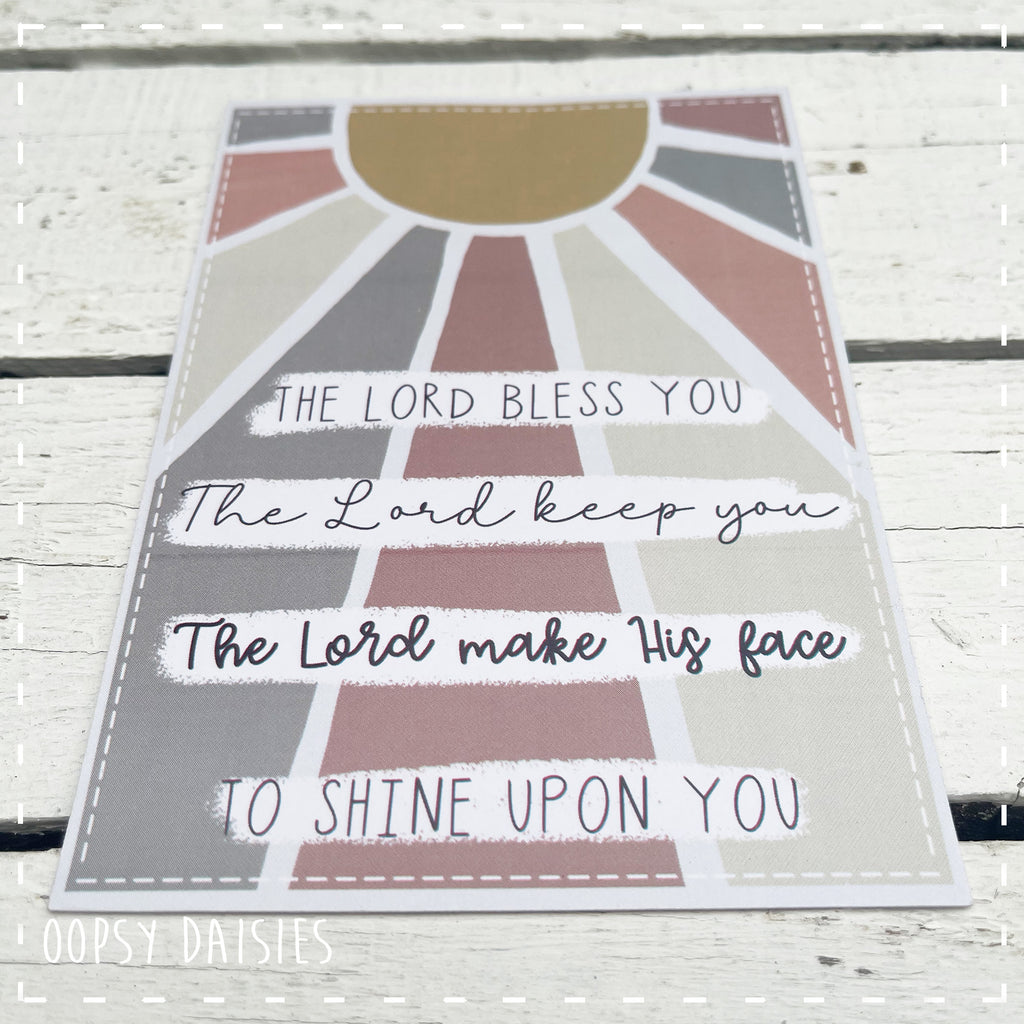 THE LORD BLESS YOU
The Lord keep you
The Lord make His face
TO SHINE UPON YOU
OOPSY DAISIES